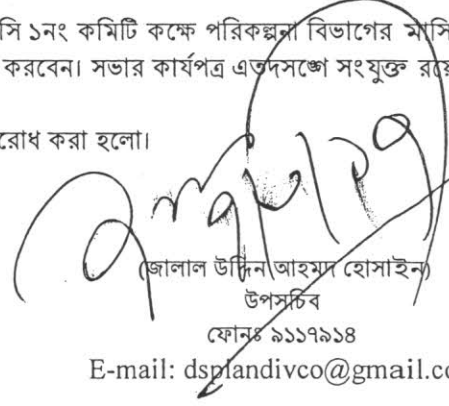 সি ১নং কমিটি কক্ষে পরিকল্পনা বিভাগের মাসি
করবেন। সভার কার্যপত্র এতদসঙ্গে সংযুক্ত রয়ে
রোধ করা হলো।
(জালাল উদ্দিন আহমদ হোসাইন)
উপসচিব
ফোনঃ ৯১১৭৯১৪
E-mail: dsplandivco@gmail.co